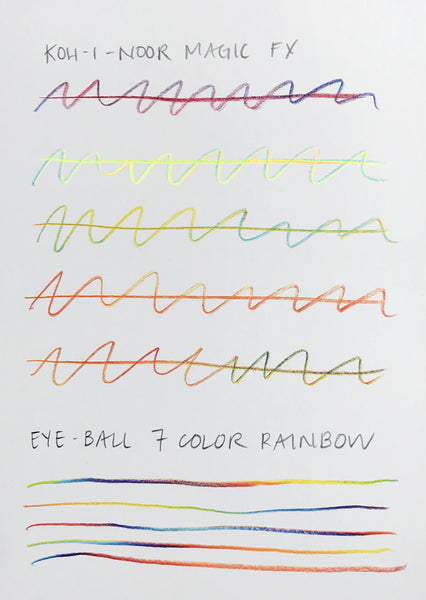 KOH-I-NOOR MAGIC FX
EYE-BALL 7 COLOR RAINBOW